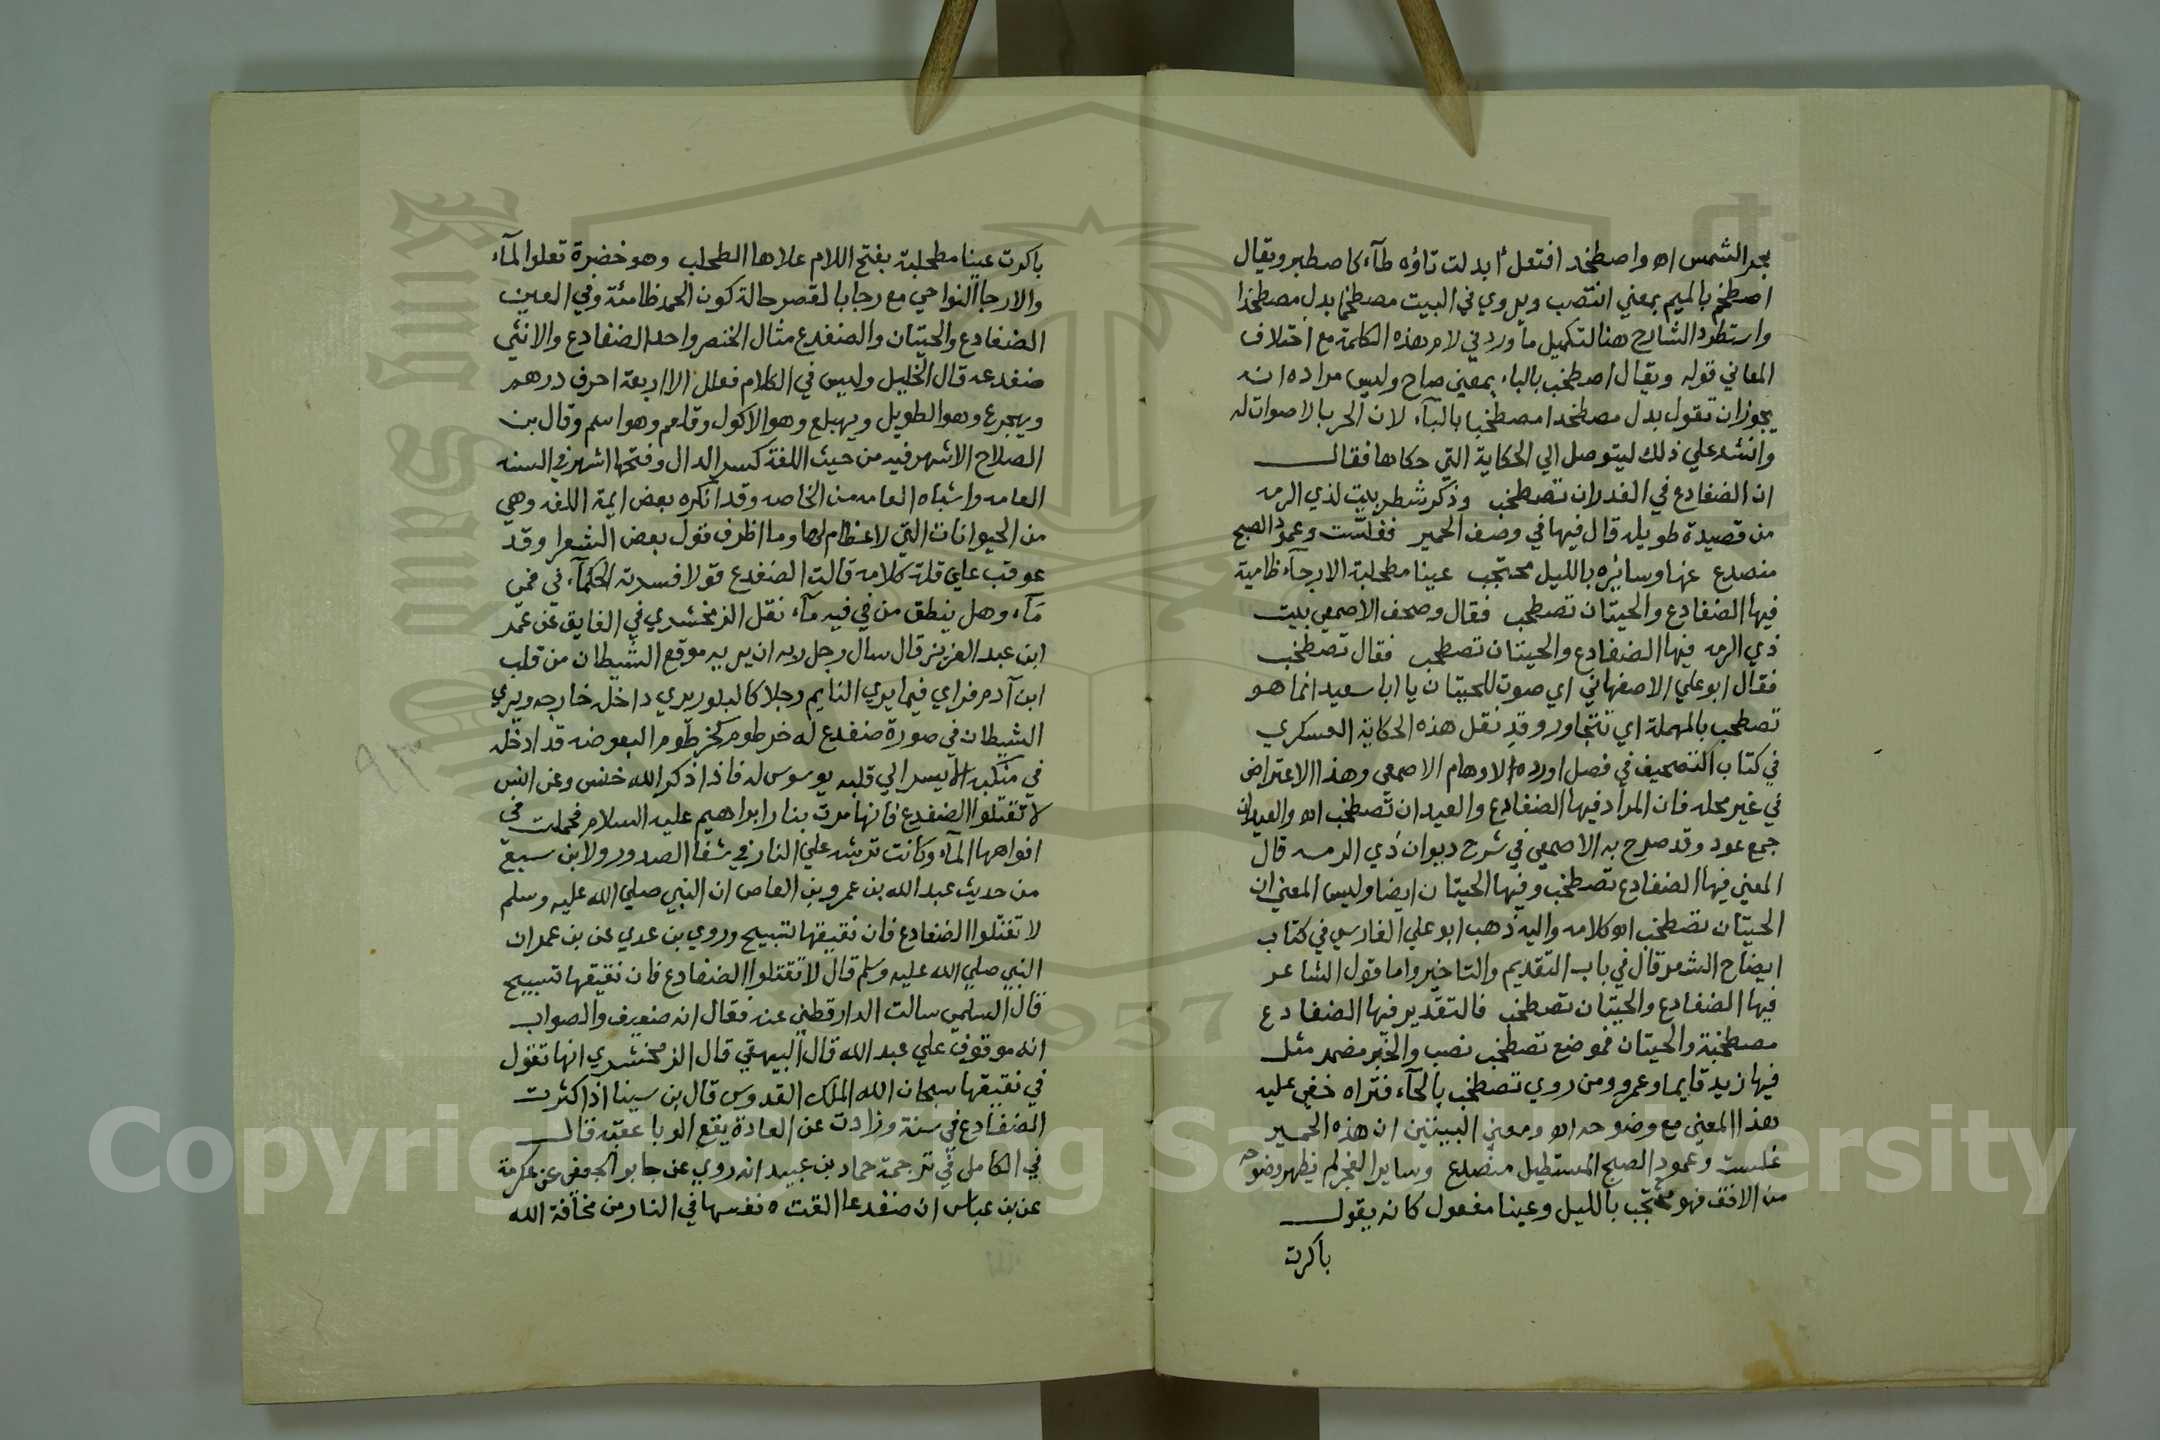 بحر الشمس اه واصطخد افتعل أبدلت تاؤه طآء كاصطبر ويقال
اصطخم بالميم بمعني انتصب ويروي في البيت مصطخما بدل مصطخدا
واستطرد الشارح هنا لتكميل ما ورد في لام هذه الكلمة مع اختلاف
المعاني قوله ويقال اصطخب بالباء بمعني صاح وليس مراده انه
يجوز ان تقول بدل مصطخدا مصطخبا بالبآء لان الحربا لا صوات له
وانشد علي ذلك ليتوصل الي الحكاية التي حكاها فقال
ان الضفادع في الغدران تصطخب وذكر شطر بيت لذي الرمه
من قصيدة طويله قال فيها في وصف الحمير فغلست وعمود الصبح
منصدع عنها وسائره بالليل محتجب عينا مطحلبة الارجآء ظامية
فيها الضفادع والحيتان تصطحب فقال وصحف الاصمعي بيت
ذي الرمه فيها الضفادع والحيتان تصطحب فقال تصطخب
فقال ابو علي الاصفهاني اي صوت للحيتان يا ابا سعيد انما هو
تصطحب بالمهملة اي تتجاور وقد نقل هذه الحكاية العسكري
في كتاب التصحيف في فصل اورده لاوهام الاصمعي وهذا الاعتراض
في غير محله فان المراد فيها الضفادع والعيدان تصطخب اه والعيدان
جمع عود وقد صرح به الاصمعي في شرح ديوان ذي الرمه قال
المعني فيها الضفادع تصطخب وفيها الحيتان ايضا وليس المعني ان
الحيتان تصطخب اه كلامه واليه ذهب ابو علي الفارسي في كتاب
ايضاح الشعر قال في باب التقديم والتاخير واما قول الشاعر
فيها الضفادع والحيتان تصطخب فالتقدير فيها الضفادع
مصطخبة والحيتان فموضع تصطخب نصب والخبر مضمر مثل
فيها زيد قايما وعمرو ومن روي تصطحب بالحآء فتراه خفي عليه
هذا المعني مع وضوحه اه ومعني البيتين ان هذه الحمير
غلست وعمود الصبح المستطيل منصدع وساير الفجر لم يظهر وضوحه
من الافق فهو محتجب بالليل وعينا مفعول كانه يقول
باكرت
باكرت عينا مطحلبة بفتح اللام علاها الطحلب وهو خضرة تعلو المآء
والارجا النواحي مع رجا بالقصر حالة كون الحمر ظامئة وفي العين
الضفادع والحيتان والضفدع مثال الخنصر واحد الضفادع والانثي
ضفدعه قال الخليل وليس في الكلام فعلل الا اربعة احرف درهم
وهجرع وهو الطويل وهبلع وهو الاكول وقلعم وهو اسم وقال بن
الصلاح الاشهر فيه من حيث اللغة كسر الدال وفتحها اشهر في السنه
العامه واشباه العامه من الخاصه وقد انكره بعض ايمة اللغه وهي
من الحيوانات التي لا عظام لها وما اظرف قول بعض الشعرا وقد
عوقب علي قلة كلامه قالت الضفدع قولا فسرته الحكمآء في فمي
مآء وهل ينطق من في فيه مآء نقل الزمخشري في الفايق عن عمر
ابن عبد العزيز قال سال رجل ربه ان يريه موقع الشيطان من قلب
ابن آدم فراي فيما يري النايم رجلا كالبلور يري داخله خارجه ويري
الشيطان في صورة ضفدع له خرطوم كخرطوم البعوضه قد ادخله
في منكبه الايسر الي قلبه يوسوس له فاذا ذكر الله خنس وعن انس
لا تقتلوا الضفدع فانها مرت بنار ابراهيم عليه السلام فحملت في
افواهها المآء وكانت ترشه علي النار في شفا الصدور ولابن سبع
من حديث عبد الله بن عمرو بن العاص ان النبي صلي الله عليه وسلم
لا تقتلوا الضفادع فان نقيقها تسبيح وروي بن عدي عن بن عمر ان
النبي صلي الله عليه وسلم قال لا تقتلوا الضفادع فان نقيقها تسبيح
قال السلمي سالت الدارقطني عنه فقال انه ضعيف والصواب
انه موقوف علي عبد الله قال البيهقي قال الزمخشري انها تقول
في نقيقها سبحان الله الملك القدوس قال بن سينا اذا كثرت
الضفادع في سنة وزادت عن العادة يقع الوبا عقبه قال
في الكامل في ترجمة حماد بن عبيد انه روي عن جابر الجعفي عن عكرمة
عن بن عباس ان ضفدعا القت ه نفسها في النار من مخافة الله
٩٣